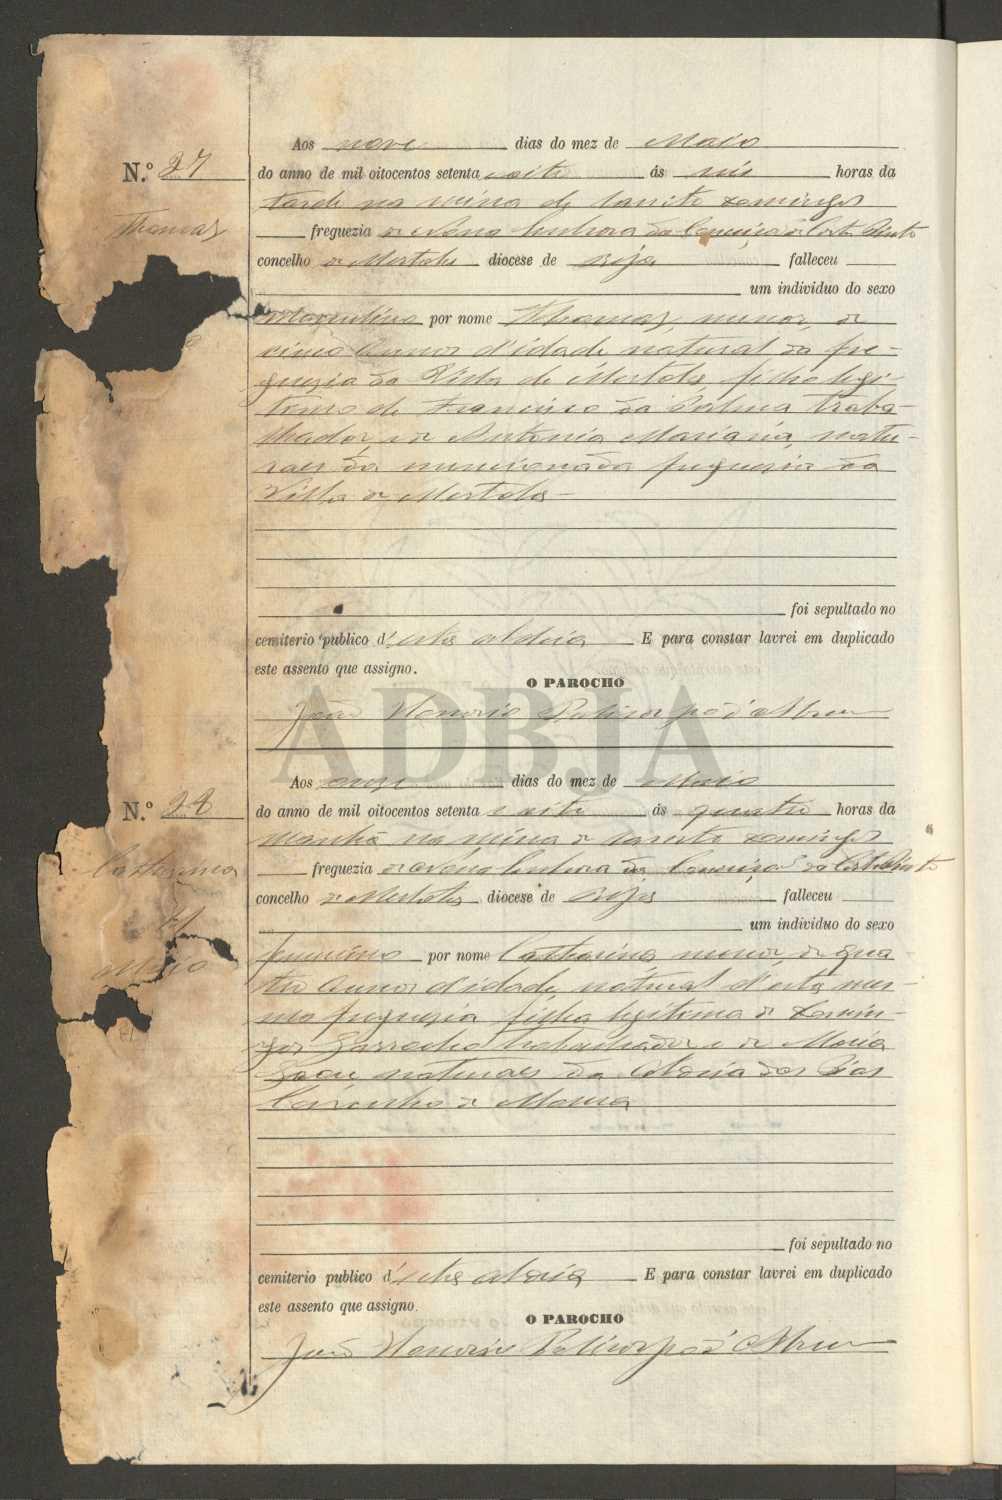 Aos nove dias do mez de Maio
N.º 27
do anno de mil oitocentos setenta e oito ás seis horas da
tarde na mina de Sam Domingos
Thomaz
freguezia de Nossa Senhora da Conceição de Corte Pinto
concelho de Mertola diocese de Beja falleceu
um individuo do sexo
Masculino por nome Thomaz, menor, de
cinco annos d'idade, natural da fre-
guezia da Villa de Mertola, filho legi-
timo de Francisco da Palma traba-
lhador, e de Antonia Marianna, natu-
raes da mencionada freguezia da
Villa de Mertola
foi sepultado no
cemiterio publico d'esta aldeia E para constar lavrei em duplicado
este assento que assigno.
O PAROCHO
João Honorio d'Abreu
ADBJA
Aos onze dias do mez de Maio
N.º 28
do anno de mil oitocentos setenta e oito ás quatro horas da
manhã na mina de Sam Domingos
Catharina
freguezia de Nossa Senhora da Conceição de Corte Pinto
concelho de Mertola diocese de Beja falleceu
um individuo do sexo
femenino por nome Catharina menor, de qua-
Maio
tro annos d'idade, natural d'esta mes-
ma freguezia filha legitima de Domin-
gos trabalhador e de Maria
naturaes da Aldeia dos
Concelho de Moura
foi sepultado no
cemiterio publico d'esta aldeia E para constar lavrei em duplicado
este assento que assigno.
O PAROCHO
João Honorio d'Abreu